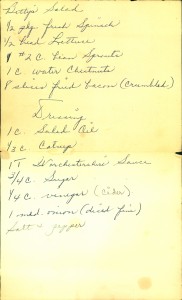 Dotty's Salad
1/2 pkg fresh Spinach
1/2 head Lettuce
1 #2 C. bean Sprouts
1 C. water Chestnuts
8 slices fried bacon (crumbled)
Dressing
1 C. Salad Oil
1/3 C. Catsup
1 T Worchestershire Sauce
3/4 C. Sugar
1/4 C. vinegar (Cider)
1 med. onion (diced fine)
Salt & pepper